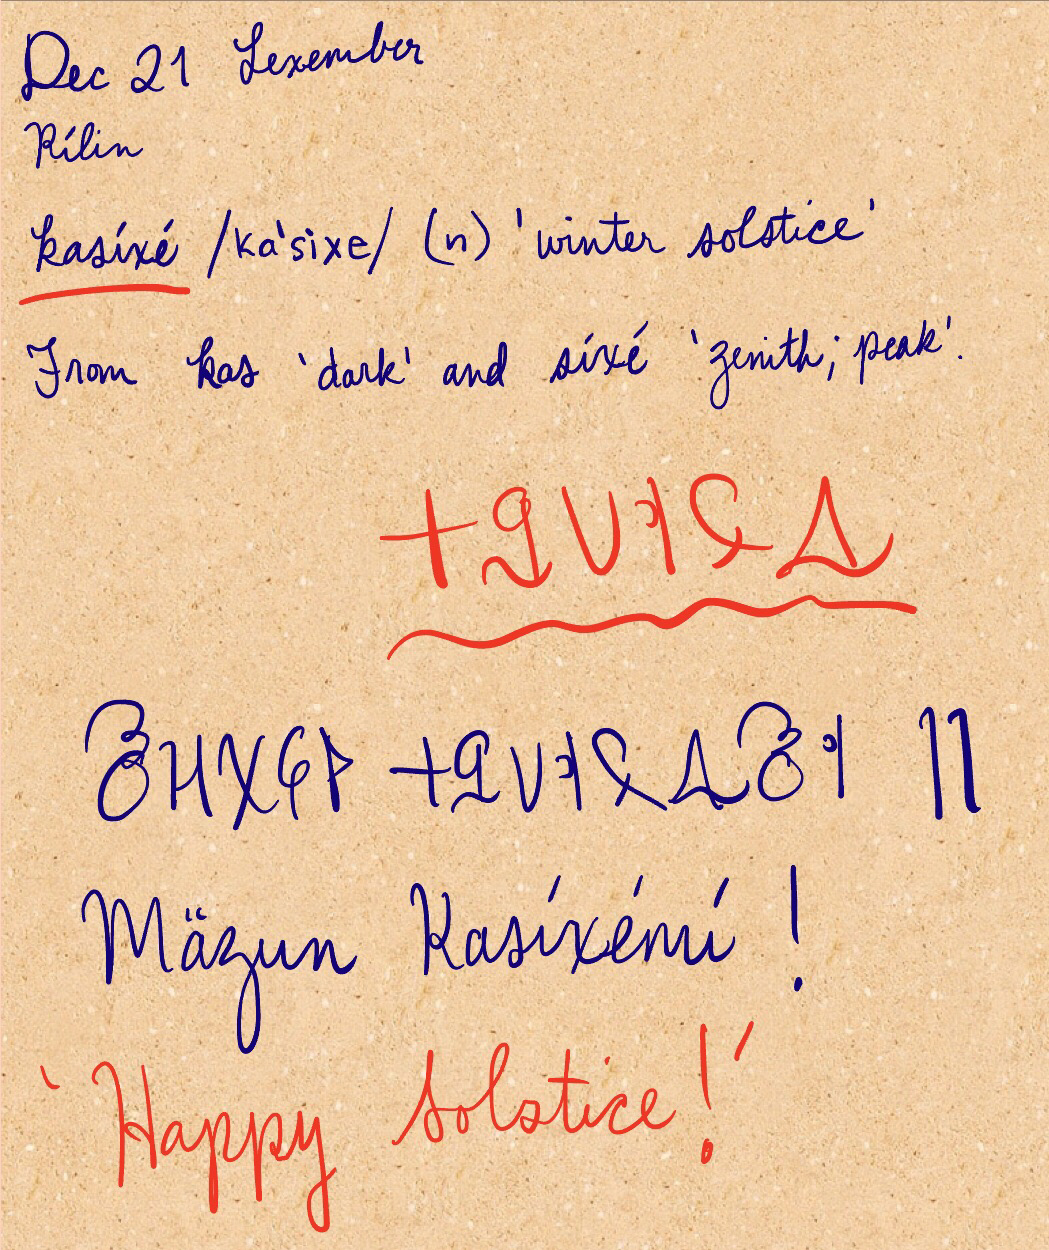 Dec 21 Lexember
Rílin
kasíxé /ka'sixe/ (n) 'winter solstice'
From kas 'dark' and síxé 'zenith; peak'.
Mäzun Kasíxémí!
'Happy Solstice!'